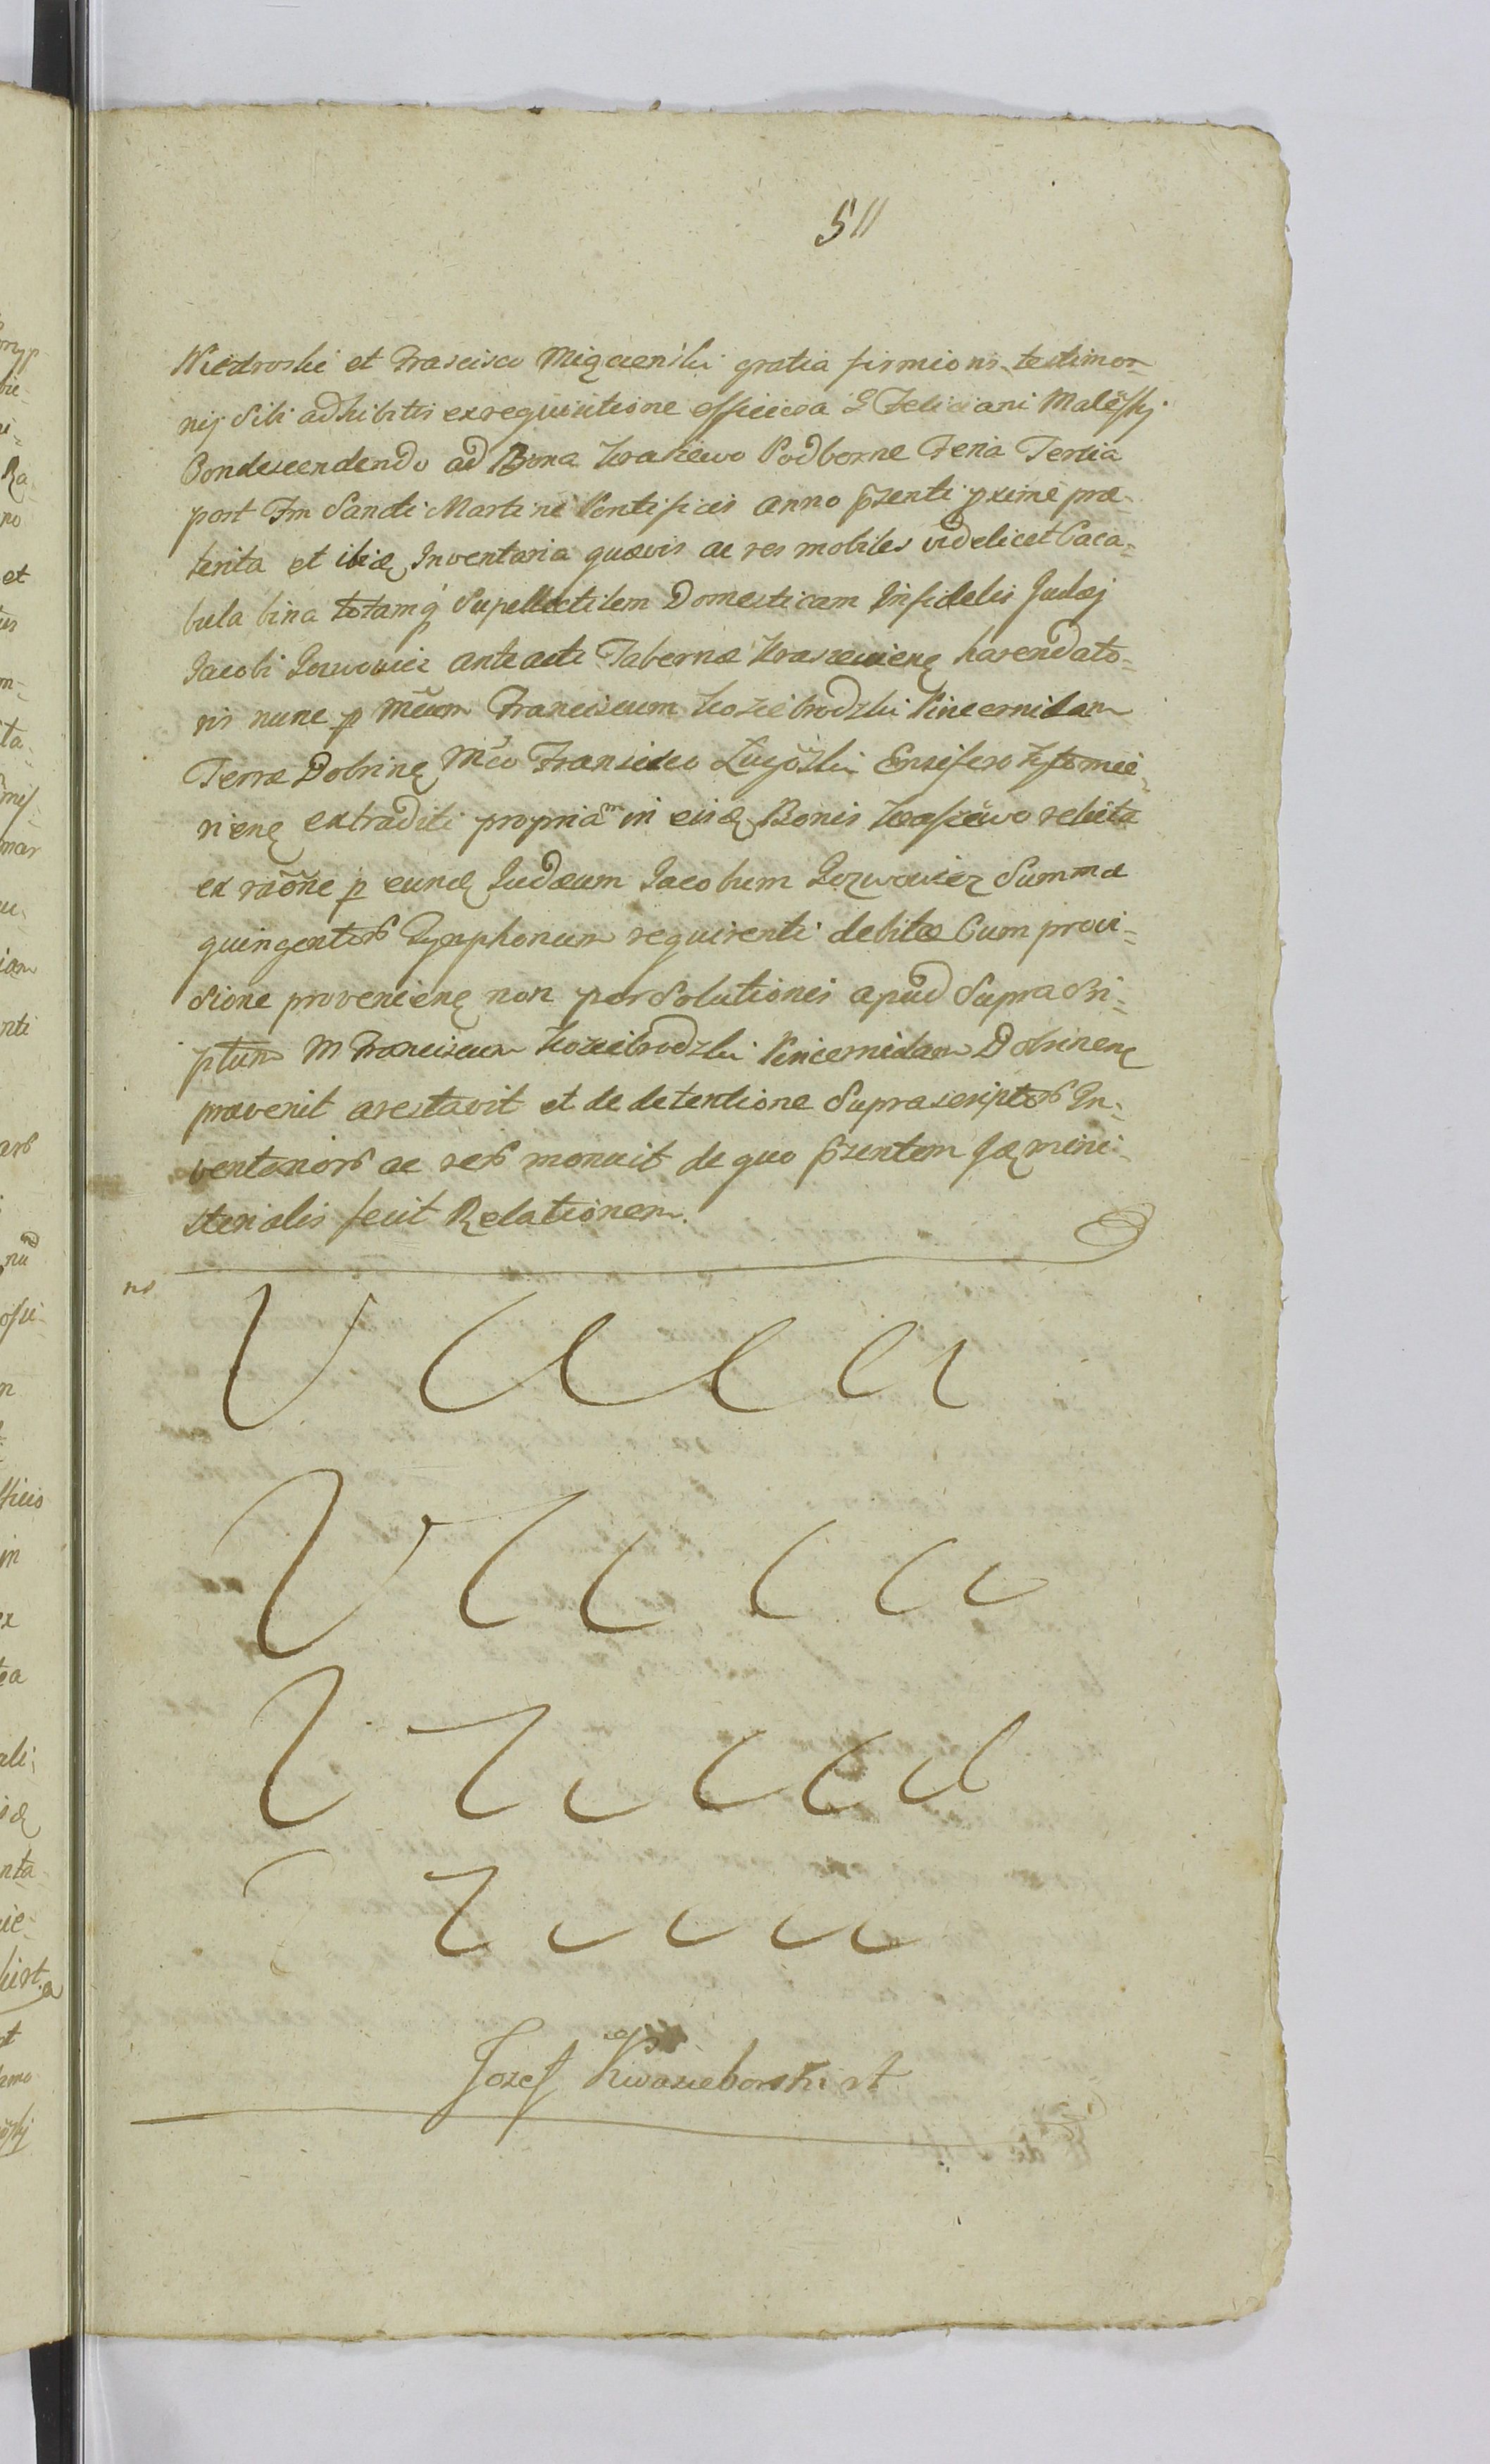 511
Niezdroski et Francisco Miączenski gratia firmioris testimo-
nij Sibi adhibitis ex requisitione officiosa G Feliciani Maleskj
Condescendendo ad Bona Kraszewo Podborne Feria Tertia
post Fm Sancti Martini Pontificis anno pzenti pxime præ-
terita et ibidę Inventaria quævis ac res mobiles videlicet Caca-
bula bina totamq Supellectilem Domesticam Infidelis Judæj
Jacobi anteacti Tabernæ Kraszewienę harendato-
ris nunc p Mcum Franciscum Koziebrodzki Pincernidam
Terræ Dobrinę Mco Francisco Ensifero Zytomie-
rienę extraditi propriam in eisdę Bonis Kraszewo relicta
ex raōne p eundę Judæum Jacobum Summæ
quingentor Tynphonum requirenti debitæ Cum provi-
sione provenienę non persolutionis apud Suprascri-
ptum M Franciscum Koziebrodzki Pincernidam Dobrinenę
prævenit arestavit et de detentione Suprascriptor In-
ventarior ac rer monuit de quo pzentem Idę mini-
sterialis fecit Relationem.
Jozef Kwasieborski rt